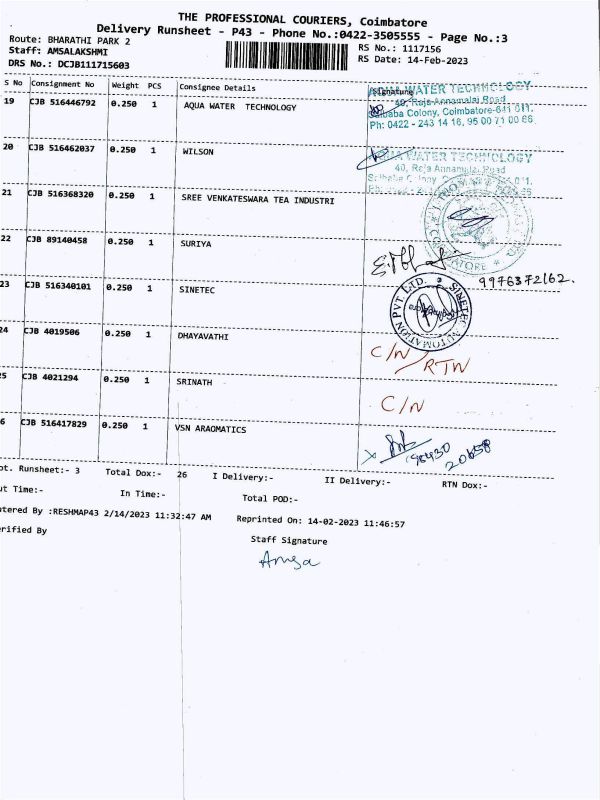 THE PROFESSIONAL COURIERS, Coimbatore
Delivery Runsheet - P43 - Phone No.:0422-3505555 - Page No.:3
Route: BHARATHI PARK 2
RS No.: 1117156
Staff: AMSALAKSHMI
RS Date: 14-Feb-2023
DRS No.: DCJB111715603
S No Consignment No Weight PCS Consignee Details Signature
AQUA WATER TECHNOLOGY
19 CJB 516446792 0.250 1 AQUA WATER TECHNOLOGY
40, Raja Annamalai Road
Saibaba Colony, Coimbatore-641 011.
Ph: 0422 - 243 14 16, 95 00 71 00 66
20 CJB 516462037 0.250 1 WILSON
AQUA WATER TECHNOLOGY
40, Raja Annamalai Road
21 CJB 516368320 0.250 1 SREE VENKATESWARA TEA INDUSTRI
22 CJB 89140458 0.250 1 SURIYA
9976372162.
23 CJB 516340101 0.250 1 SINETEC
SINETEC AUTOMATION PVT. LTD.
24 CJB 4019506 0.250 1 DHAYAVATHI
C/N RTN
5 CJB 4021294 0.250 1 SRINATH
C/N
6 CJB 516417829 0.250 1 VSN ARAOMATICS
98430 20658
ot. Runsheet:- 3 Total Dox:- 26 I Delivery:- II Delivery:- RTN Dox:-
ut Time:- In Time:- Total POD:-
ntered By :RESHMAP43 2/14/2023 11:32:47 AM Reprinted On: 14-02-2023 11:46:57
erified By Staff Signature
Amsa